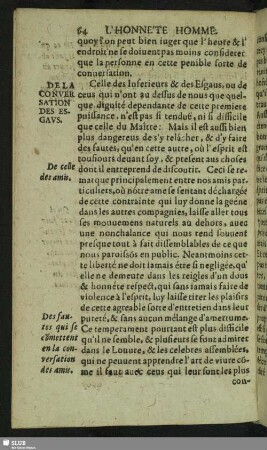 64 L'HONNETE HOMME.
quoy l'on peut bien iuger que l'heure & l'
endroit ne se doiuent pas moins considerer
que la personne en cette penible sorte de
conuersation.
DE LA
CONVER
SATION
DES ES-
GAVS.
Celle des Inferieurs & des Esgaus, ou de
ceus qui n'ont au dessus de nous que quel-
que dignité dependante de cette premiere
puissance, n'est pas si tenduë, ni si difficile
que celle du Maître: Mais il est aussi bien
plus dangereus de s'y relascher, & d'y faire
des fautes, qu'en cette autre, où l'esprit est
tousiours deuant soy, & present aus choses
De celle
des amis.
dont il entreprend de discourir. Ceci se re-
marque principalement entre nos amis par-
ticuliers, où nôtre ame se sentant déchargée
de cette contrainte qui luy donne la geéne
dans les autres compagnies, laisse aller tous
ses mouuemens naturels au dehors, auec
vne nonchalance qui nous rend souuent
presque tout à fait dissemblables de ce que
nous paroissós en public. Neantmoins cet-
te liberté ne doit jamais être si negligée, qu'
elle ne demeure dans les reigles d'un dous
& honnéte respect, qui sans jamais faire de
violence à l'esprit, luy laisse tirer les plaisirs
de cette agreable sorte d'entretien dans leur
Des fau-
tes qui se
cōmettent
en la con-
versation
des amis.
pureté, & sans aucun mélange d'amertume.
Ce temperament pourtant est plus difficile
qu'il ne semble, & plusieurs se font admirer
dans le Louure, & les celebres assemblées,
qui ne peuuent apprendre l'art de viure cō-
me il faut auec ceus qui leur sont les plus
con-
SLUB